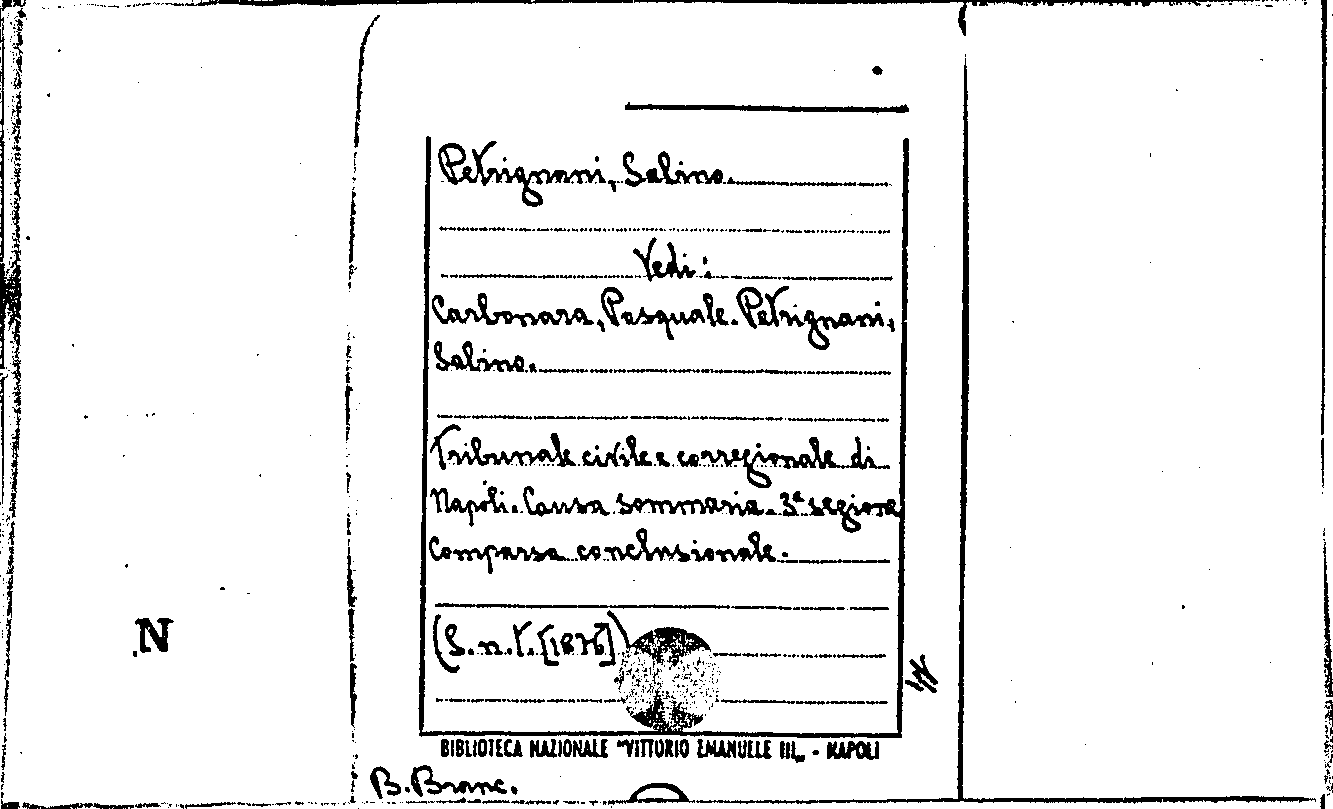 Petrignani, Sabino.
Vedi:
Carbonara, Pasquale. Petrignani,
Sabino.
Tribunale civile e corregionale di
Napoli. Causa sommaria. 3ª segione
Comparsa conclusionale.
(S. n. t. [1876])
N
BIBLIOTECA NAZIONALE "VITTORIO EMANUELE III„ - NAPOLI
B. Branc.